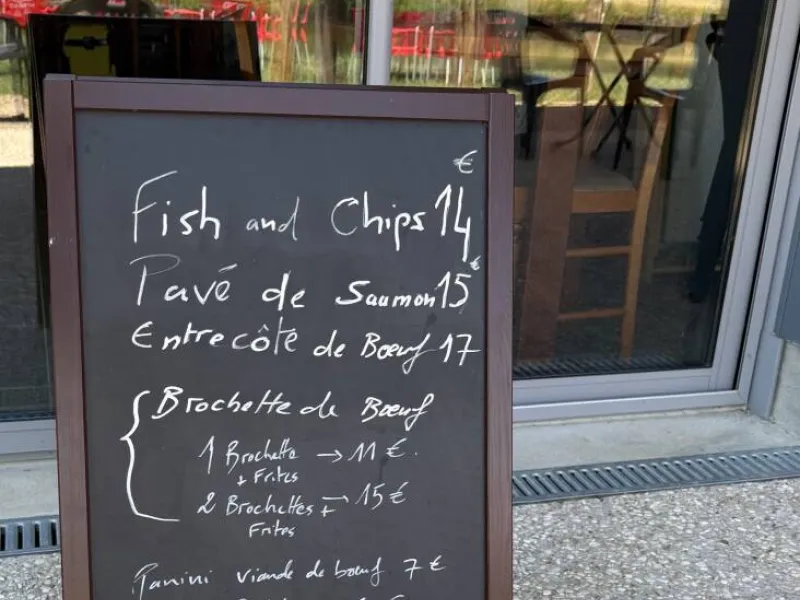 Fish and Chips 14 €
Pavé de Saumon 15 €
Entrecôte de Bœuf 17
Brochette de Bœuf
1 Brochette → 11 €.
+ Frites
2 Brochettes + → 15 €
Frites
Panini viande de bœuf 7 €